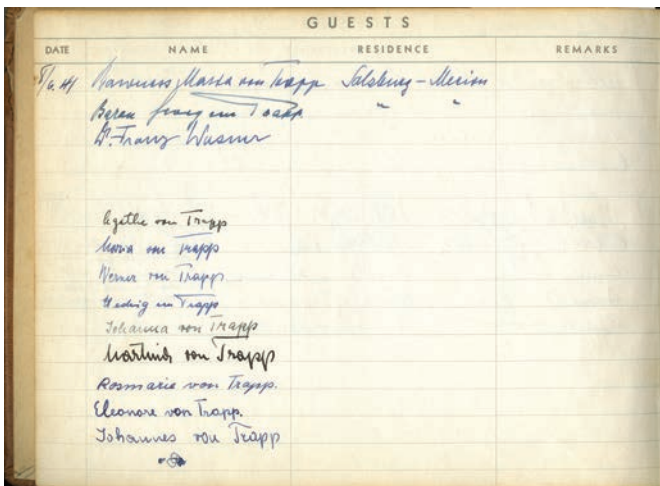 GUESTS
DATE NAME RESIDENCE REMARKS
8/6.41 Baroness Maria von Trapp Salzburg – Merion
Baron Georg von Trapp " "
Dr. Franz Wasner
Agathe von Trapp
Maria von Trapp
Werner von Trapp
Hedwig von Trapp
Johanna von Trapp
Martina von Trapp
Rosmarie von Trapp.
Eleonore von Trapp.
Johannes von Trapp